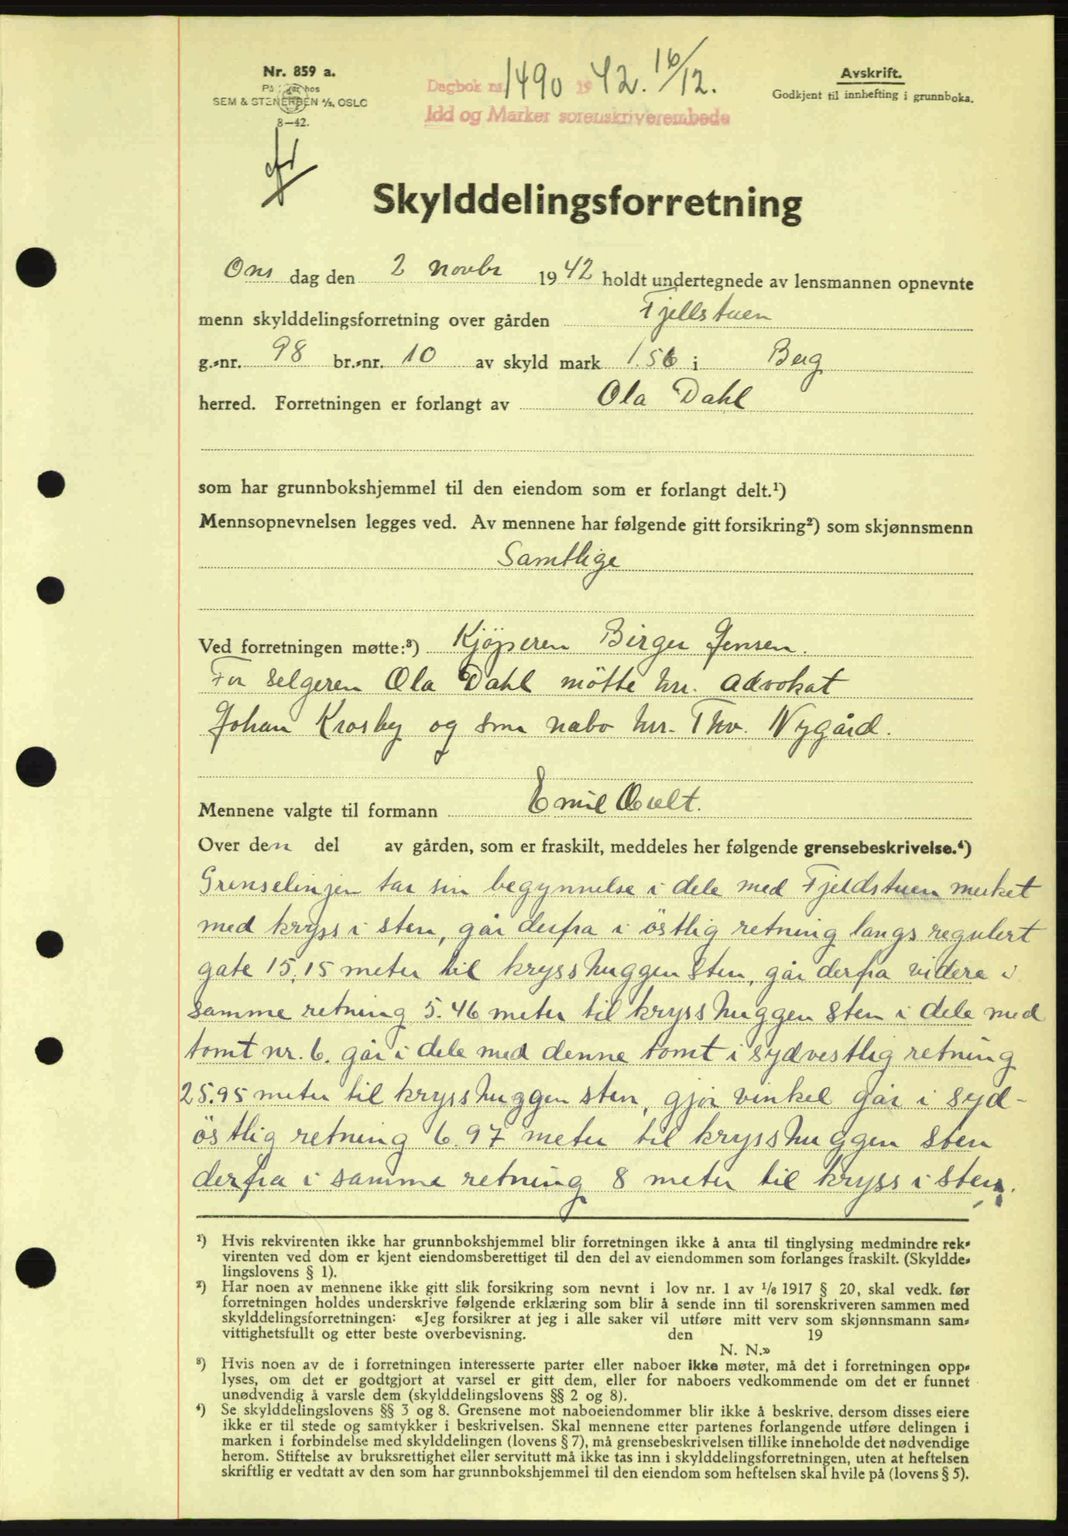 Nr. 859 a.
På lager hos
SEM & STENERSEN A/S, OSLO
8—42.
Dagbok nr. 1490 19 42. 16/12.
Idd og Marker sorenskriverembede
Avskrift.
Godkjent til innhefting i grunnboka.
Skylddelingsforretning
Ons dag den 2 novbr 1942 holdt undertegnede av lensmannen opnevnte
menn skylddelingsforretning over gården Fjellstuen
g.-nr. 98 br.-nr. 10 av skyld mark 1.56 i Berg
herred. Forretningen er forlangt av Ola Dahl
som har grunnbokshjemmel til den eiendom som er forlangt delt.¹)
Mennsopnevnelsen legges ved. Av mennene har følgende gitt forsikring²) som skjønnsmenn
Samtlige
Ved forretningen møtte:³) Kjöperen Birger Jensen.
For selgeren Ola Dahl mötte hr. advokat
Johan Krosby og som nabo hr. Thv. Nygård.
Mennene valgte til formann Emil
Over den del av gården, som er fraskilt, meddeles her følgende grensebeskrivelse.⁴)
Grenselinjen tar sin begynnelse i dele med Fjeldstuen merket
med kryss i sten, går derfra i östlig retning langs regulert
gate 15,15 meter til krysshuggen sten, går derfra videre i
samme retning 5.46 meter til krysshuggen sten i dele med
tomt nr. 6. går i dele med denne tomt i sydvestlig retning
25.95 meter til krysshuggen sten, gjör vinkel går i syd-
östlig retning 6.97 meter til krysshuggen sten
derfra i samme retning 8 meter til kryss i sten.
¹) Hvis rekvirenten ikke har grunnbokshjemmel blir forretningen ikke å anta til tinglysing medmindre rek-
virenten ved dom er kjent eiendomsberettiget til den del av eiendommen som forlanges fraskilt. (Skyldde-
lingslovens § 1).
²) Har noen av mennene ikke gitt slik forsikring som nevnt i lov nr. 1 av 1/6 1917 § 20, skal vedk. før
forretningen holdes underskrive følgende erklæring som blir å sende inn til sorenskriveren sammen med
skylddelingsforretningen: «Jeg forsikrer at jeg i alle saker vil utføre mitt verv som skjønnsmann sam-
vittighetsfullt og etter beste overbevisning. den 19
N. N.»
³) Hvis noen av de i forretningen interesserte parter eller naboer ikke møter, må det i forretningen opp-
lyses, om det er godtgjort at varsel er gitt dem, eller for naboers vedkommende om det er funnet
unødvendig å varsle dem (skylddelingslovens §§ 2 og 8).
⁴) Se skylddelingslovens §§ 3 og 8. Grensene mot naboeiendommer blir ikke å beskrive, dersom disses eiere
ikke er til stede og samtykker i beskrivelsen. Skal mennene etter partenes forlangende utføre delingen i
marken i forbindelse med skylddelingen (lovens § 7), må grensebeskrivelsen tillike inneholde det nødvendige
herom. Stiftelse av bruksrettighet eller servitutt må ikke tas inn i skylddelingsforretningen, uten at heftelsen
skriftlig er vedtatt av den som har grunnbokshjemmel til den eiendom som heftelsen skal hvile på (lovens § 5).